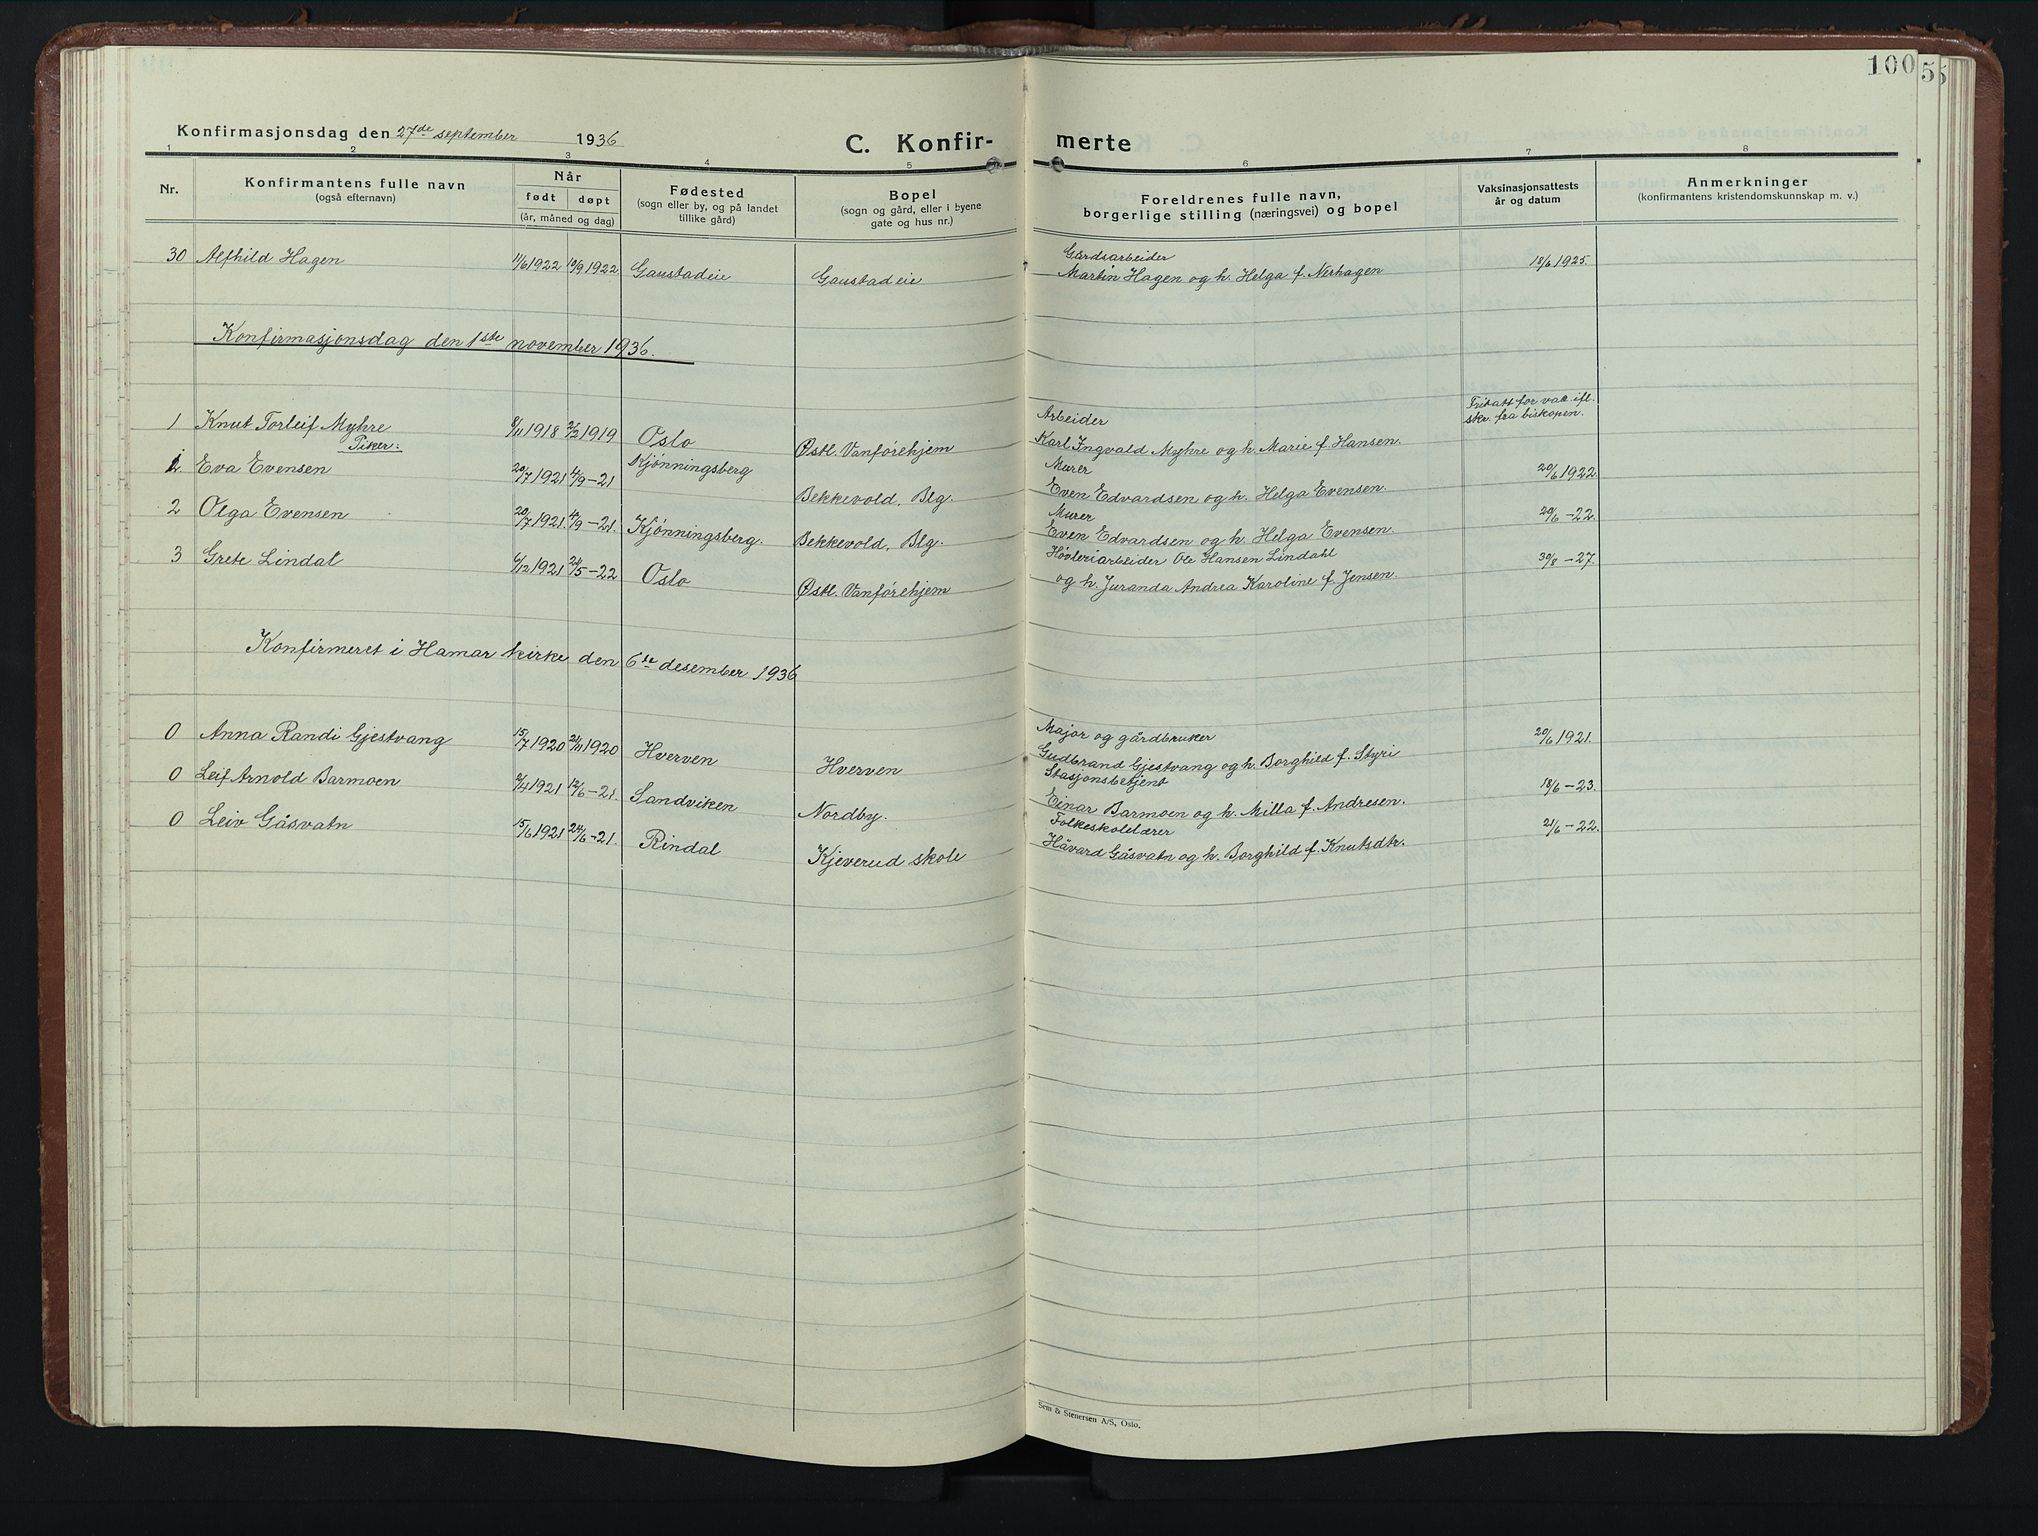 100
55
Konfirmasjonsdag den 27de september 1936
C. Konfir-merte
1 2 3 4 5 6 7 8
Nr.
Konfirmantens fulle navn
(også efternavn)
Når
født døpt
(år, måned og dag)
Fødested
(sogn eller by, og på landet
tillike gård)
Bopel
(sogn og gård, eller i byene
gate og hus nr.)
Foreldrenes fulle navn,
borgerlige stilling (næringsvei) og bopel
Vaksinasjonsattests
år og datum
Anmerkninger
(konfirmantens kristendomskunnskap m. v.)
30 Alfhild Hagen 11/6 1922 10/9 1922 Gaustadeie Gaustadeie Gårdsarbeider
Martin Hagen og h. Helga f. Nerhagen 18/6 1925.
Konfirmasjonsdag den 1ste november 1936.
1 Knut Torleif Myhre 8/11 1918 2/2 1919 Oslo Østl. Vanførehjem Arbeider
Karl Ingvald Myhre og h. Marie f. Hansen. Fritatt for vac. ifl.
skr. fra biskopen.
Piker:
1 Eva Evensen 20/7 1921 4/9-21 Kjønningsberg Bekkevold, Blg. Murer
Even Edvardsen og h. Helga Evensen. 20/6 1922
2 Olga Evensen 20/7 1921. 4/9-21. Kjønningsberg. Bekkevold, Blg. Murer
Even Edvardsen og h. Helga Evensen. 20/6-22.
3 Grete Lindal 6/12 1921 24/5-22 Oslo Østl. Vanførehjem Høvleriarbeider Ole Hansen Lindahl
og h. Juranda Andrea Karoline f. Jensen. 30/8-27.
Konfirmeret i Hamar kirke den 6te desember 1936
0 Anna Randi Gjestvang 15/7 1920 21/11 1920 Hverven Hverven Major og gårdbruker
Gudbrand Gjestvang og h. Borghild f. Styri 20/6 1921.
0 Leif Arnold Barmoen 2/4 1921 12/6-21. Sandviken Nordby. Stasjonsbetjent
Einar Barmoen og h. Milla f. Andresen. 18/6-23.
0 Leiv Gåsvatn 15/6 1921 24/6-21. Rindal Kjeverud skole Folkeskolelærer
Håvard Gåsvatn og h. Borghild f. Knutsdtr. 21/6-22.
Sem & Stenersen A/S, Oslo.